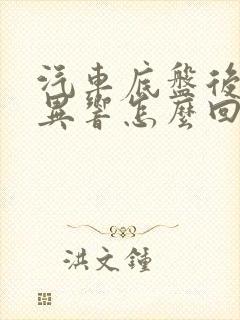 汽車底盤後
異響怎麼回
洪文鐘